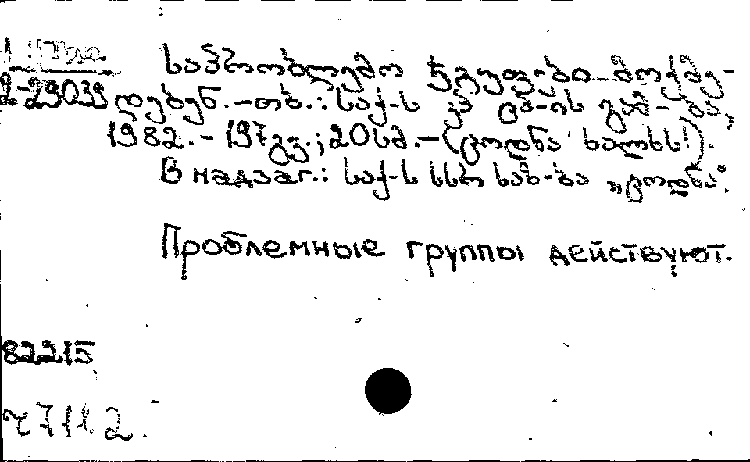 საპრობლემო ჯგუფები მოქმე-
2-29039 დებენ. -თბ.: საქ-ს კპ ცკ-ის გამ-ბა,
1982. - 197გვ.; 20სმ. - (ცოდნა ხალხს!).
В надзаг.: საქ-ს სსრ საზ-ბა „ცოდნა".
Проблемные группы действуют.
82215
7112.